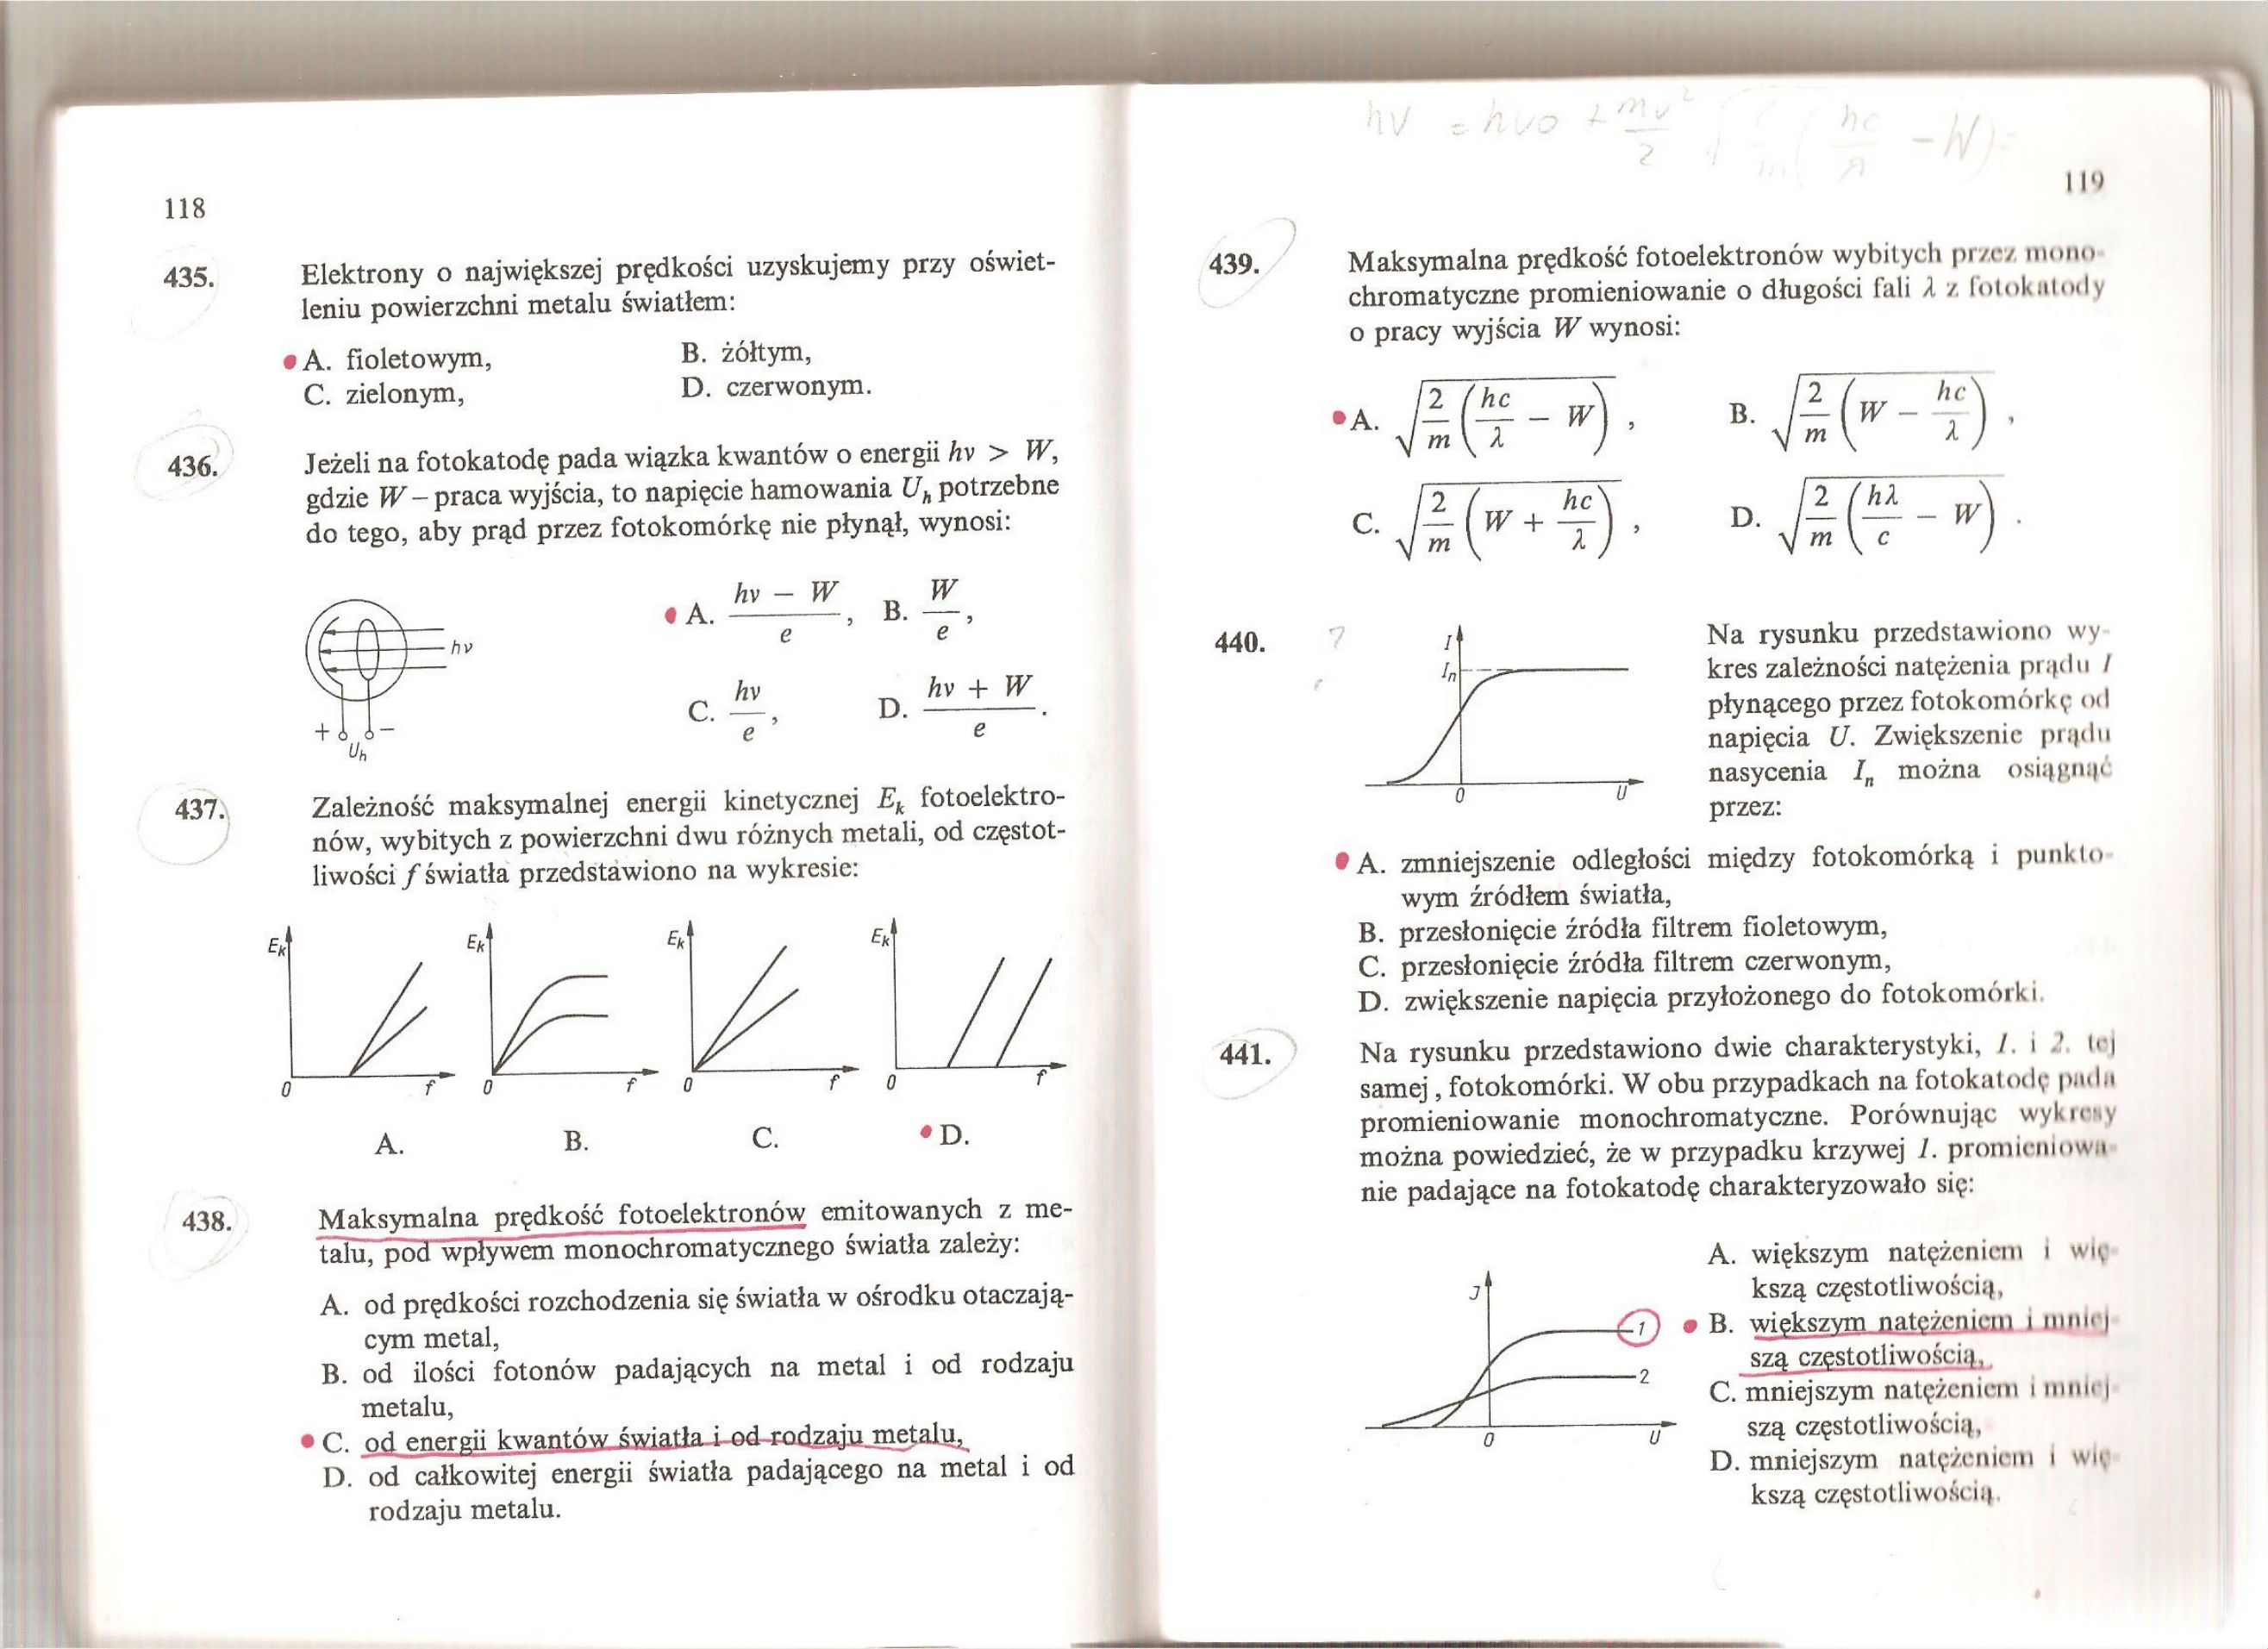 118
435. Elektrony o największej prędkości uzyskujemy przy oświet-
leniu powierzchni metalu światłem:
A. fioletowym, B. żółtym,
C. zielonym, D. czerwonym.
436. Jeżeli na fotokatodę pada wiązka kwantów o energii hν > W,
gdzie W – praca wyjścia, to napięcie hamowania Uₕ potrzebne
do tego, aby prąd przez fotokomórkę nie płynął, wynosi:
hν
+ −
Uₕ
A. (hν − W)/e, B. W/e,
C. hν/e, D. (hν + W)/e.
437. Zależność maksymalnej energii kinetycznej Eₖ fotoelektro-
nów, wybitych z powierzchni dwu różnych metali, od częstot-
liwości f światła przedstawiono na wykresie:
Eₖ Eₖ Eₖ Eₖ
0 f 0 f 0 f 0 f
A. B. C. D.
438. Maksymalna prędkość fotoelektronów emitowanych z me-
talu, pod wpływem monochromatycznego światła zależy:
A. od prędkości rozchodzenia się światła w ośrodku otaczają-
cym metal,
B. od ilości fotonów padających na metal i od rodzaju
metalu,
C. od energii kwantów światła i od rodzaju metalu,
D. od całkowitej energii światła padającego na metal i od
rodzaju metalu.
hν = hν0 + mv²/2 (hc/λ − W)
119
439. Maksymalna prędkość fotoelektronów wybitych przez mono-
chromatyczne promieniowanie o długości fali λ z fotokatody
o pracy wyjścia W wynosi:
A. √(2/m (hc/λ − W)), B. √(2/m (W − hc/λ)),
C. √(2/m (W + hc/λ)), D. √(2/m (hλ/c − W)).
440. ?
I
Iₙ
0 U
Na rysunku przedstawiono wy-
kres zależności natężenia prądu I
płynącego przez fotokomórkę od
napięcia U. Zwiększenie prądu
nasycenia Iₙ można osiągnąć
przez:
A. zmniejszenie odległości między fotokomórką i punkto-
wym źródłem światła,
B. przesłonięcie źródła filtrem fioletowym,
C. przesłonięcie źródła filtrem czerwonym,
D. zwiększenie napięcia przyłożonego do fotokomórki.
441. Na rysunku przedstawiono dwie charakterystyki, 1. i 2. tej
samej , fotokomórki. W obu przypadkach na fotokatodę pada
promieniowanie monochromatyczne. Porównując wykresy
można powiedzieć, że w przypadku krzywej 1. promieniowa-
nie padające na fotokatodę charakteryzowało się:
J
1
2
0 U
A. większym natężeniem i wię-
kszą częstotliwością,
B. większym natężeniem i mniej-
szą częstotliwością,
C. mniejszym natężeniem i mniej-
szą częstotliwością,
D. mniejszym natężeniem i wię-
kszą częstotliwością.